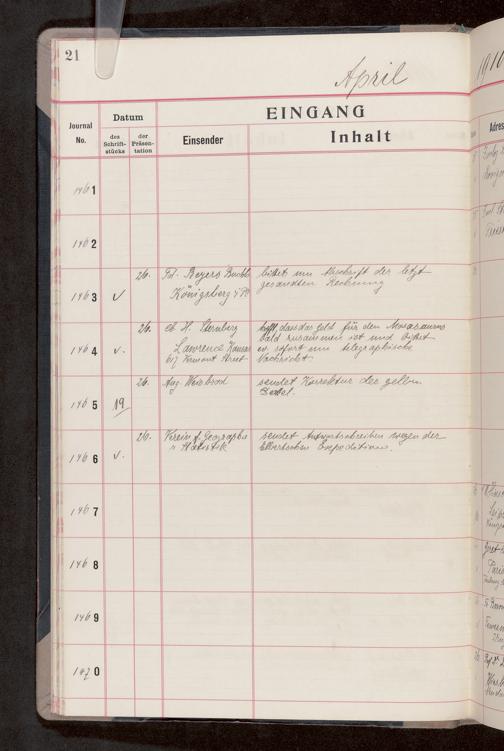 21
April
1910
EINGANG
Journal No.
Datum
des Schrift-stücks
der Präsen-tation
Einsender
Inhalt
Adres
1461
1462
1463 ✓ 26. Beyers Buchh. bittet um Abschrift der letzt
Königsberg gesandten Rechnung
1464 ✓ 26. Ch. H. Sternberg hofft, dass das Geld für den Mosasaurus
Lawrence Kansas bald zusammen ist und bittet
617 Vermont Street sofort um telegraphische
Nachricht.
1465 19 26. Aug. Weisbrod sendet Korrektur der gelben
Zettel.
1466 ✓ 26. Verein f. Geographie sendet Antwortschreiben wegen der
u. Statistik Expedition.
1467
1468
1469
1470